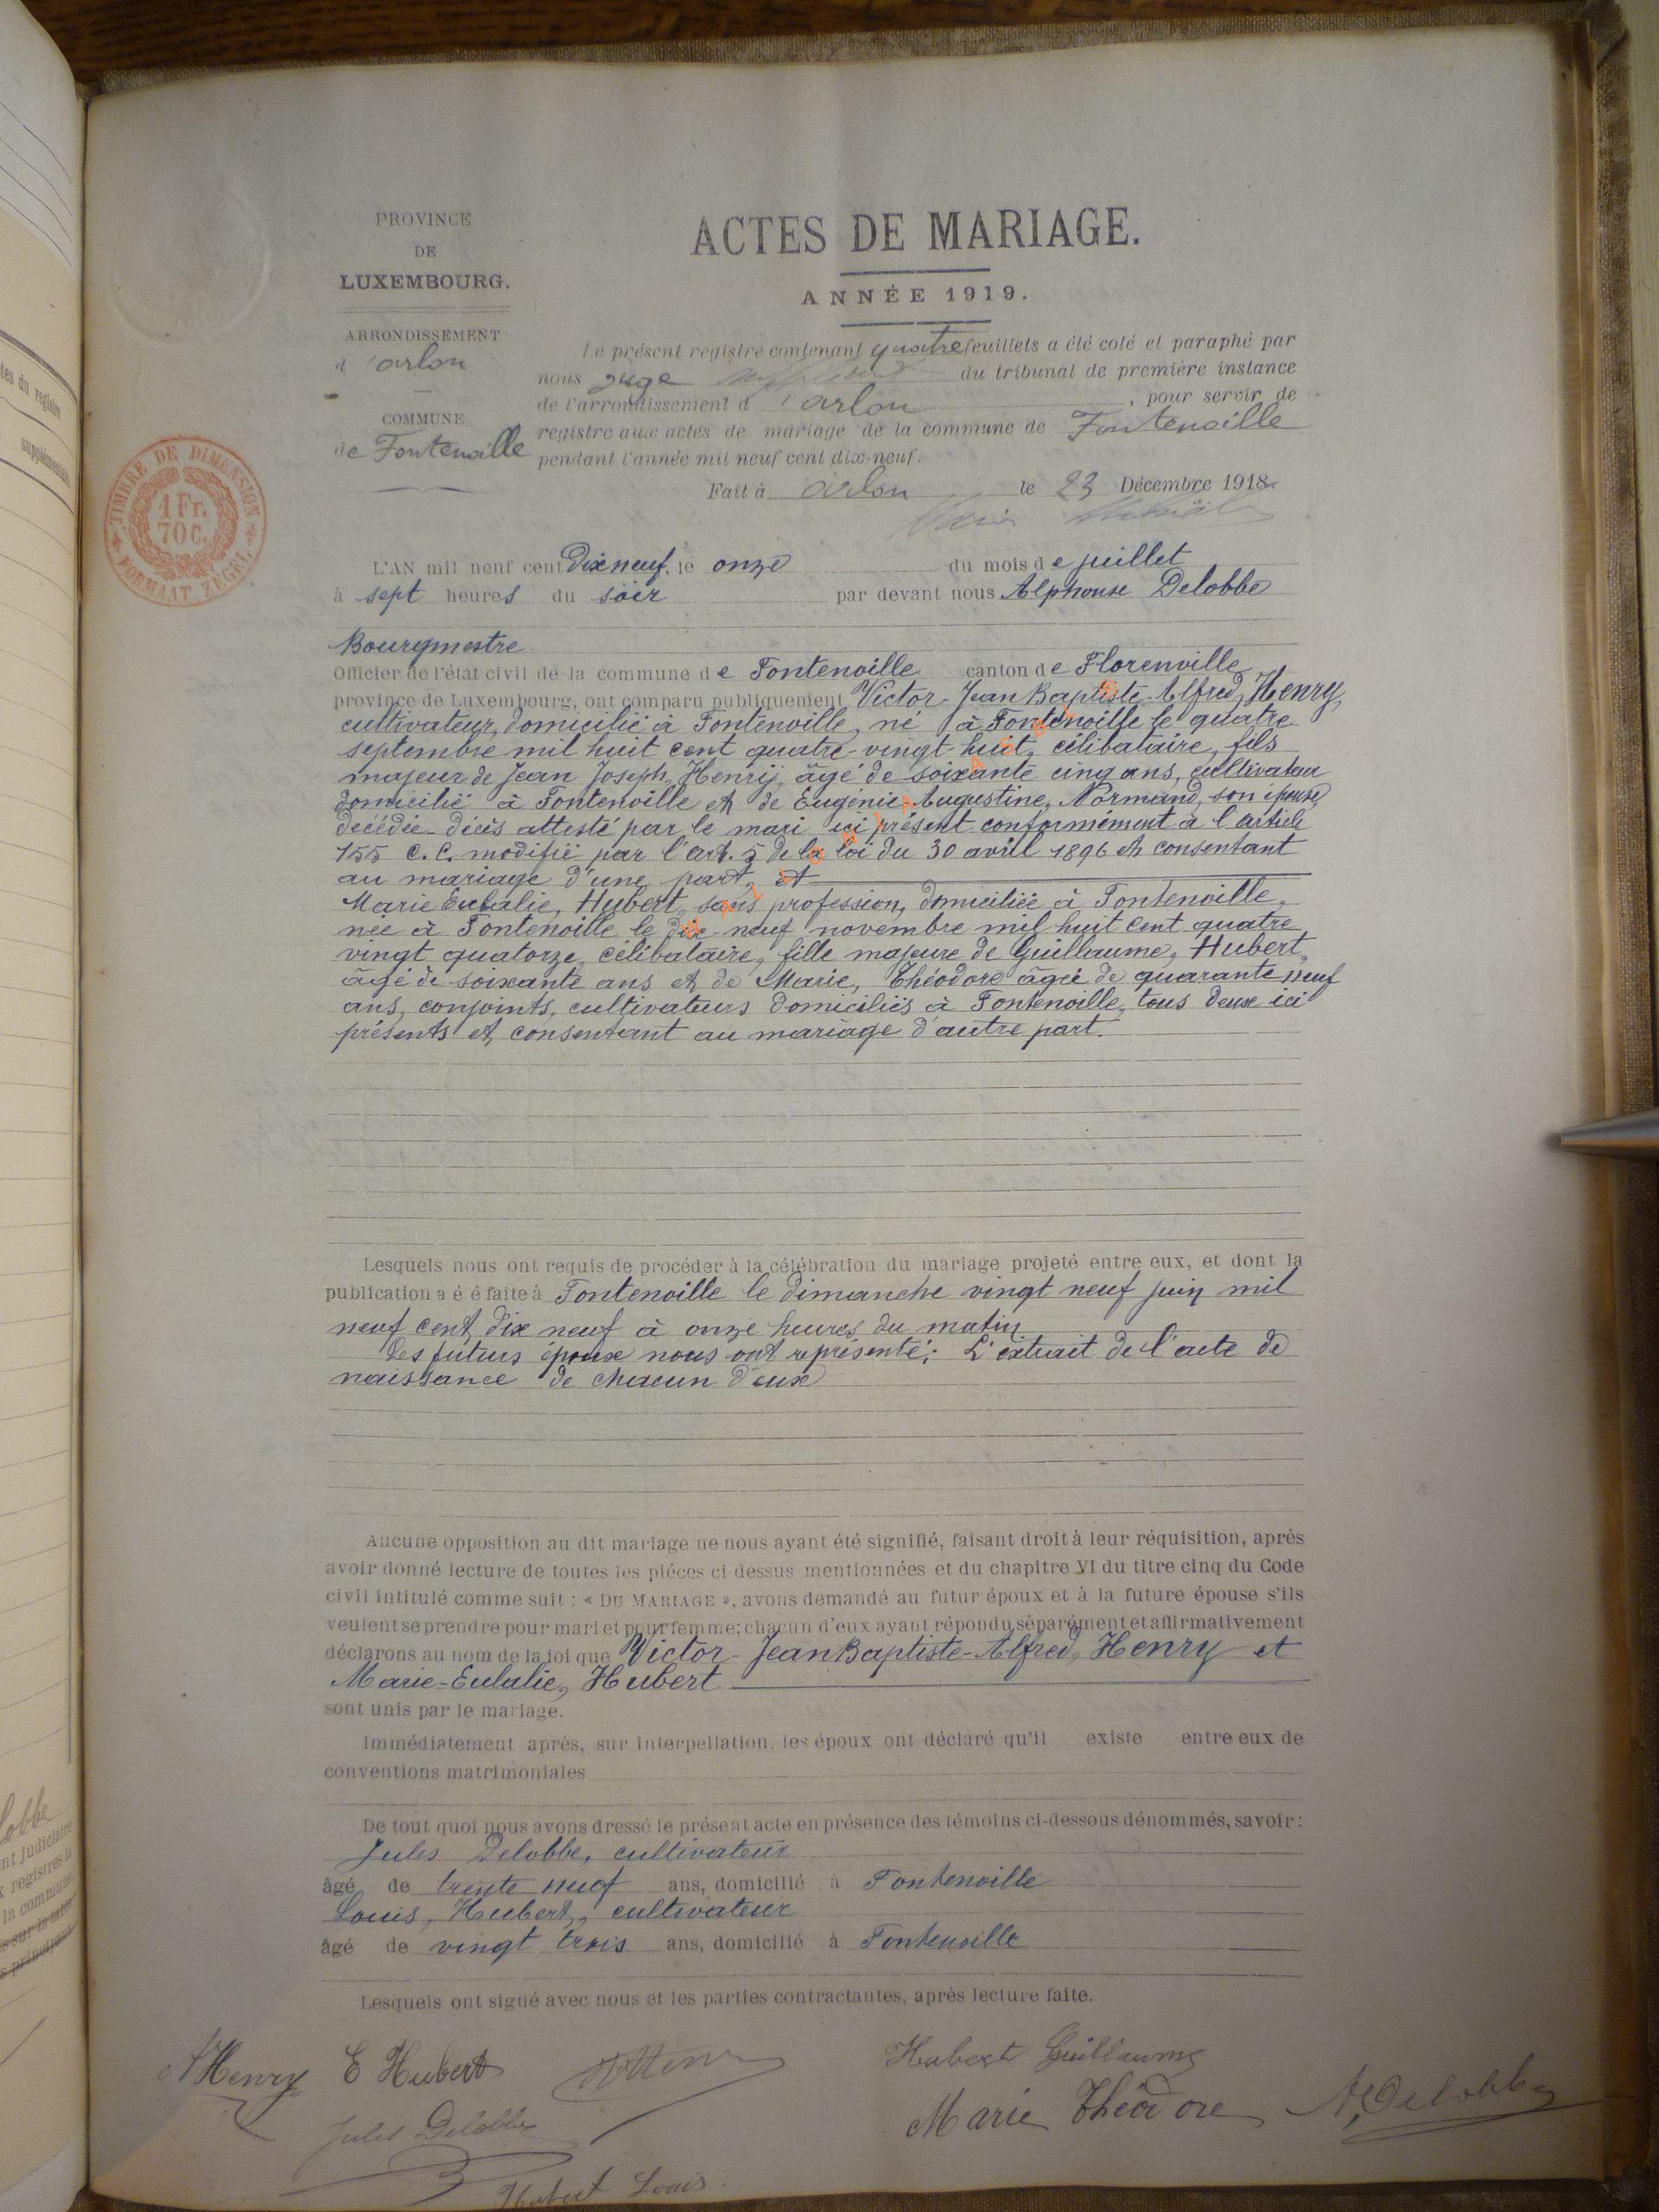 PROVINCE
DE
LUXEMBOURG.
ARRONDISSEMENT
d'arlon
COMMUNE
de Fontenoille
TIMBRE DE DIMENSION
1 Fr.
70 C.
FORMAAT ZEGEL
ACTES DE MARIAGE.
ANNÉE 1919.
Le présent registre contenant quatre feuillets a été coté et paraphé par
nous juge du tribunal de première instance
de l'arrondissement d'arlon, pour servir de
registre aux actes de mariage de la commune de Fontenoille
pendant l'année mil neuf cent dix-neuf.
Fait à Arlon le 23 Décembre 1918.
L'AN mil neuf cent Dix neuf, le onze du mois de juillet
à sept heures du soir par devant nous Alphonse Delobbe
Bourgmestre
Officier de l'état civil de la commune de Fontenoille canton de Florenville
province de Luxembourg, ont comparu publiquement Victor-Jean Baptiste-Alfred, Henry,
cultivateur, domicilié à Fontenoille, né à Fontenoille le quatre
septembre mil huit cent quatre-vingt huit, célibataire, fils
majeur de Jean Joseph, Henry, âgé de soixante cinq ans, cultivateur
domicilié à Fontenoille et de Eugénie Augustine, Normand, son épouse,
décédée - décès attesté par le mari ici présent conformément à l'article
155 C.C. modifié par l'art. 5 de la loi du 30 avril 1896 et consentant
au mariage d'une part, et
Marie Eulalie, Hubert, sans profession, domiciliée à Fontenoille,
née à Fontenoille le dix-neuf novembre mil huit cent quatre
vingt quatorze, célibataire, fille majeure de Guillaume, Hubert,
âgé de soixante ans et de Marie, Théodore âgée de quarante neuf
ans, conjoints, cultivateurs domiciliés à Fontenoille, tous deux ici
présents et consentant au mariage d'autre part.
Lesquels nous ont requis de procéder à la célébration du mariage projeté entre eux, et dont la
publication a é é faite à Fontenoille le dimanche vingt neuf juin mil
neuf cent dix neuf à onze heures du matin
Les futurs époux nous ont représenté: L'extrait de l'acte de
naissance de chacun d'eux
Aucune opposition au dit mariage ne nous ayant été signifié, faisant droit à leur réquisition, après
avoir donné lecture de toutes les pièces ci dessus mentionnées et du chapitre VI du titre cinq du Code
civil intitulé comme suit : « DU MARIAGE », avons demandé au futur époux et à la future épouse s'ils
veulent se prendre pour mari et pour femme; chacun d'eux ayant répondu séparément et affirmativement
déclarons au nom de la loi que Victor-Jean Baptiste-Alfred, Henry et
Marie-Eulalie, Hubert
sont unis par le mariage.
Immédiatement après, sur interpellation, les époux ont déclaré qu'il existe entre eux de
conventions matrimoniales
De tout quoi nous avons dressé le présent acte en présence des témoins ci-dessous dénommés, savoir:
Jules Delobbe, cultivateur
âgé de trente neuf ans, domicilié à Fontenoille
Louis, Hubert, cultivateur
âgé de vingt trois ans, domicilié à Fontenoille
Lesquels ont signé avec nous et les parties contractantes, après lecture faite.
A Henry E Hubert Hubert Guillaume
Marie Théodore A, Delobbe
Jules Delobbe
Hubert Louis.